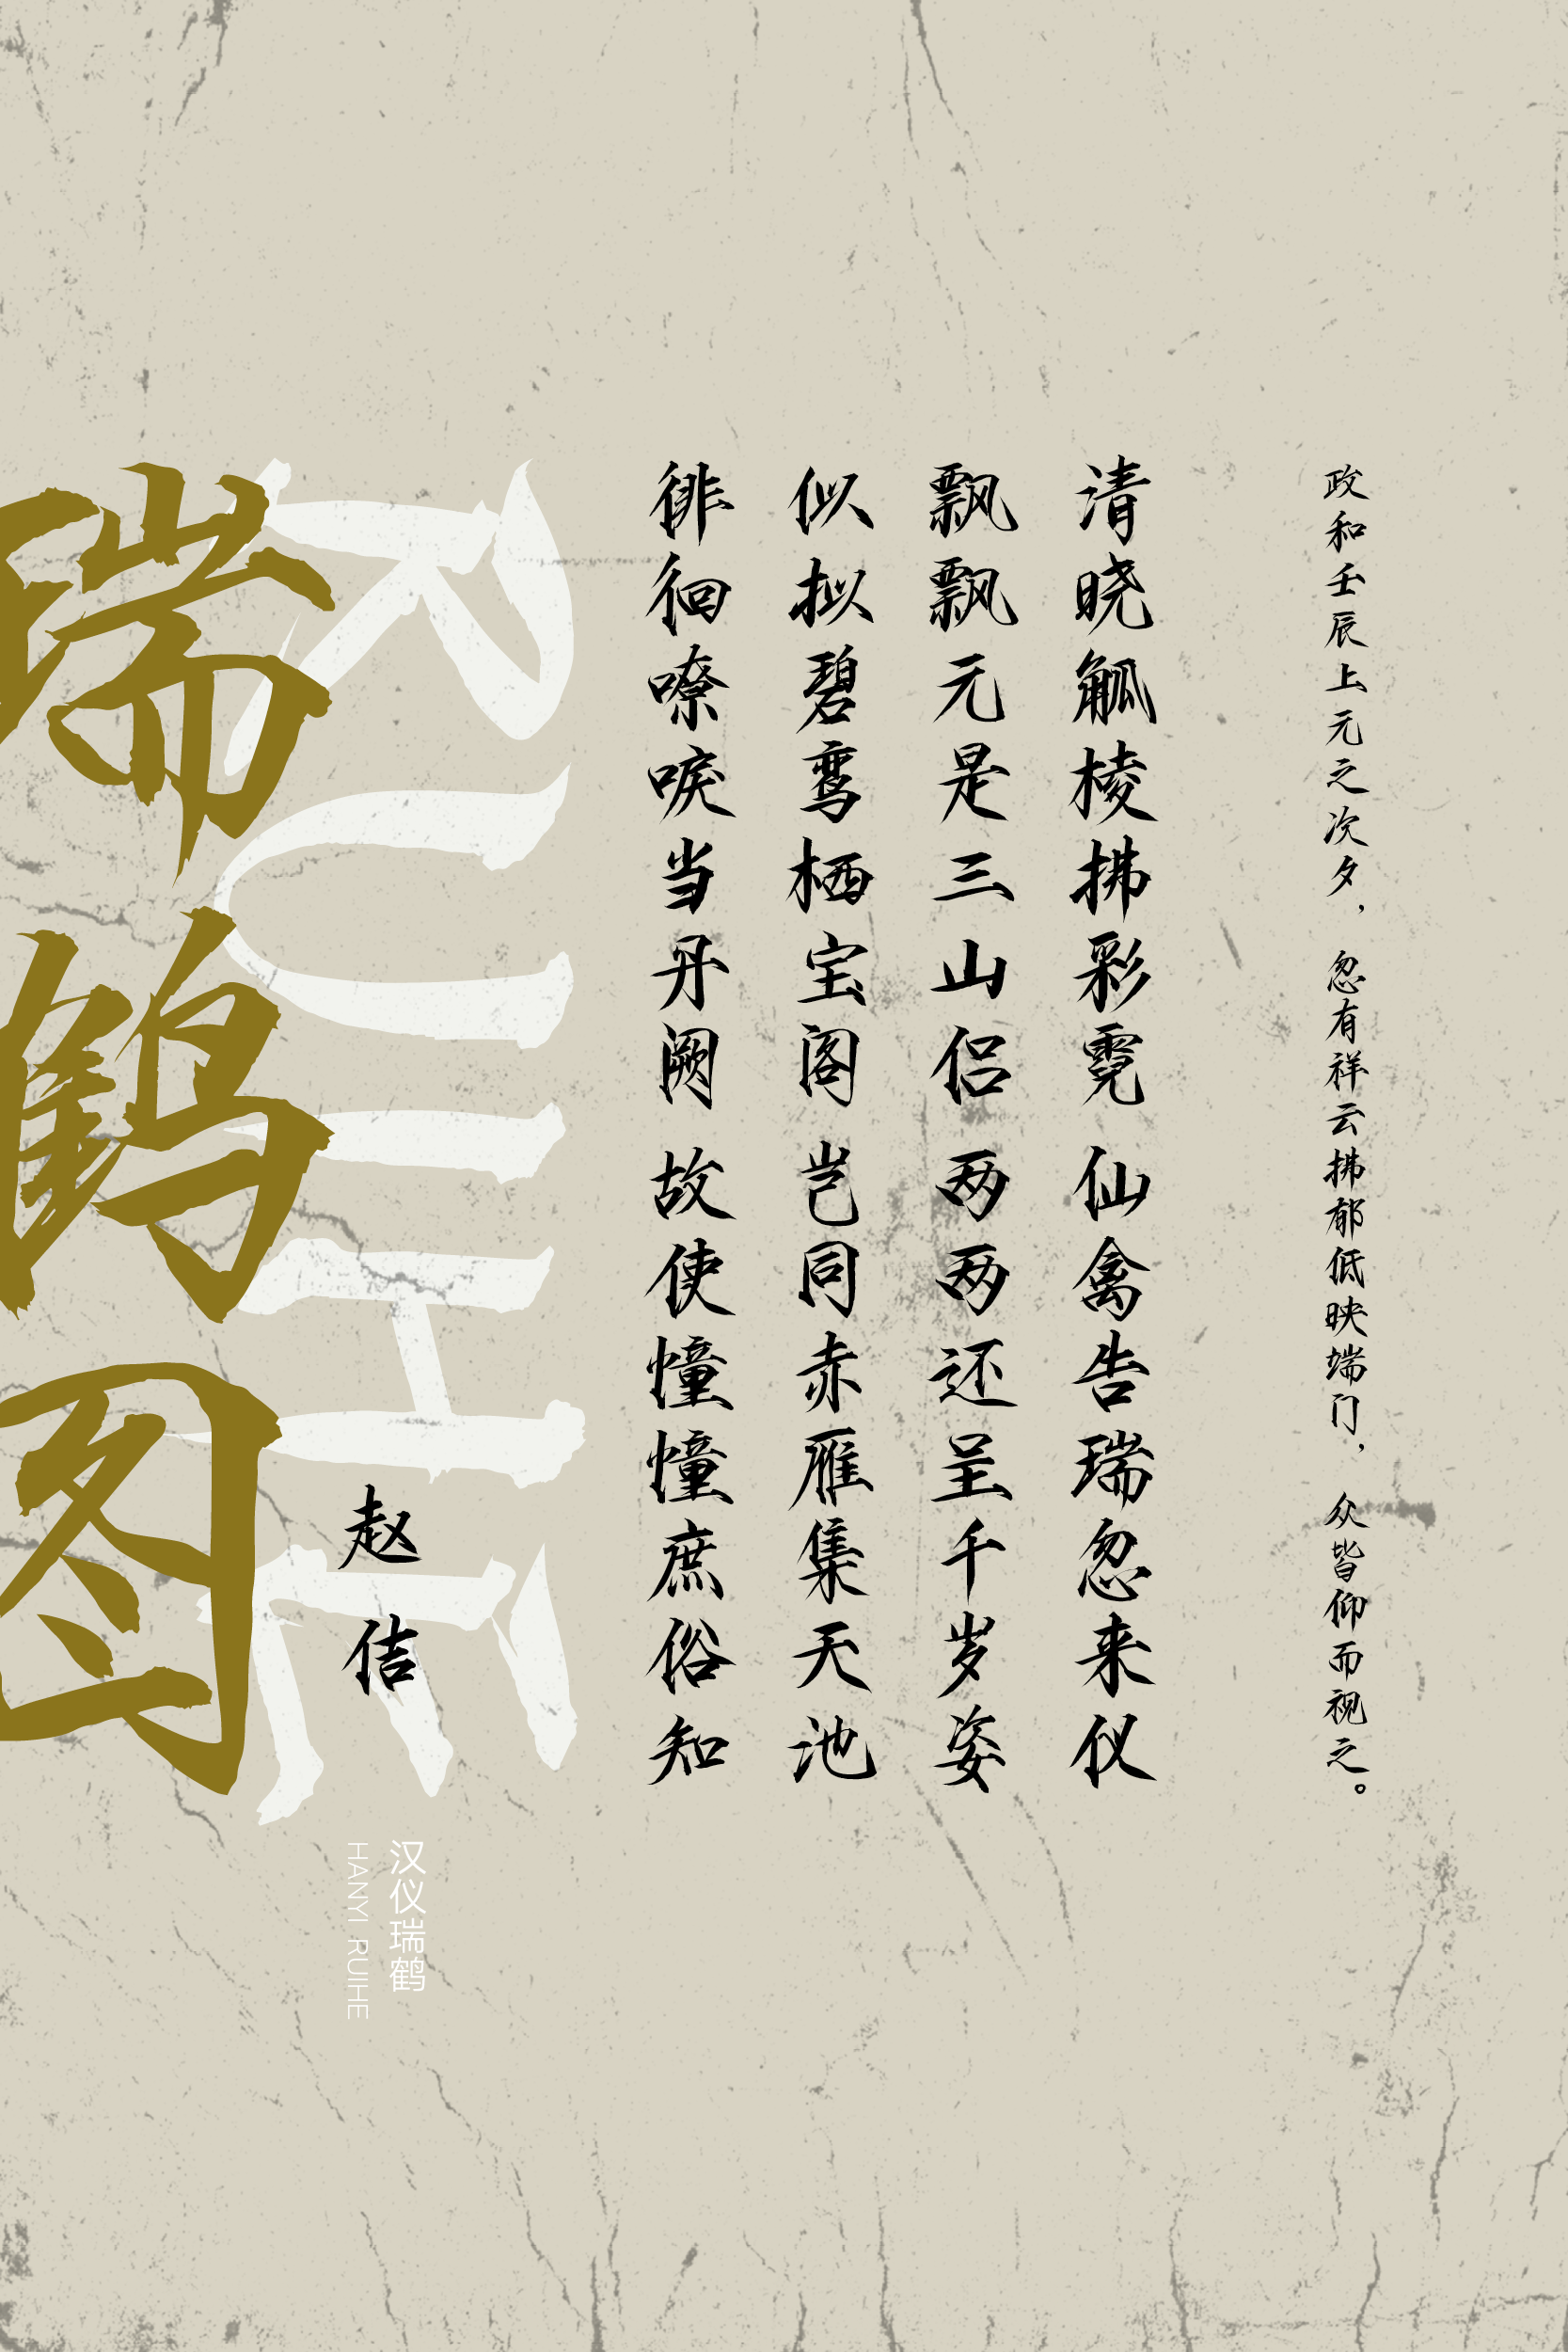 政和壬辰上元之次夕，忽有祥云拂郁低映端门，众皆仰而视之。
清晓觚棱拂彩霓 仙禽告瑞忽来仪
飘飘元是三山侣 两两还呈千岁姿
似拟碧鸾栖宝阁 岂同赤雁集天池
徘徊嘹唳当丹阙 故使憧憧庶俗知
赵佶
瑞鹤图
RUIHE
汉仪瑞鹤
HANYI RUIHE